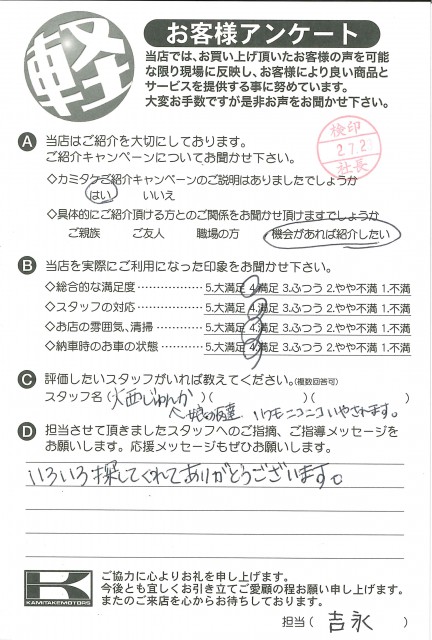 軽
お客様アンケート
当店では、お買い上げ頂いたお客様の声を可能
な限り現場に反映し、お客様により良い商品と
サービスを提供する事に努めています。
大変お手数ですが是非お声をお聞かせ下さい。
検印
社長
A 当店はご紹介を大切にしております。
ご紹介キャンペーンについてお聞かせ下さい。
◇カミタケご紹介キャンペーンのご説明はありましたでしょうか
はい いいえ
◇具体的にご紹介頂ける方とのご関係をお聞かせ頂けますでしょうか
ご親族 ご友人 職場の方 機会があれば紹介したい
B 当店を実際にご利用になった印象をお聞かせ下さい。
◇総合的な満足度 ……………… 5.大満足 4.満足 3.ふつう 2.やや不満 1.不満
◇スタッフの対応 ……………… 5.大満足 4.満足 3.ふつう 2.やや不満 1.不満
◇お店の雰囲気、清掃 ………… 5.大満足 4.満足 3.ふつう 2.やや不満 1.不満
◇納車時のお車の状態 ………… 5.大満足 4.満足 3.ふつう 2.やや不満 1.不満
C 評価したいスタッフがいれば教えてください。(複数回答可)
スタッフ名 ( 西じゅんか )( )( )
娘の友達 いつもニコニコいやされます。
D 担当させて頂きましたスタッフへのご指摘、ご指導メッセージを
お願いします。応援メッセージもぜひお願いします。
いろいろ探してくれてありがとうございます。
K
KAMITAKEMOTORS
ご協力に心よりお礼を申し上げます。
今後とも宜しくお引き立てご愛顧の程お願い申し上げます。
またのご来店を心からお待ちしております。
担当 ( 吉永 )